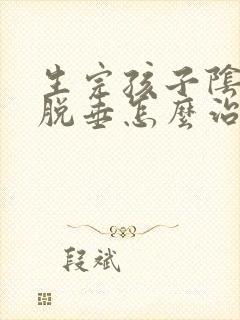 生完孩子陰
脱垂怎麼治
段斌